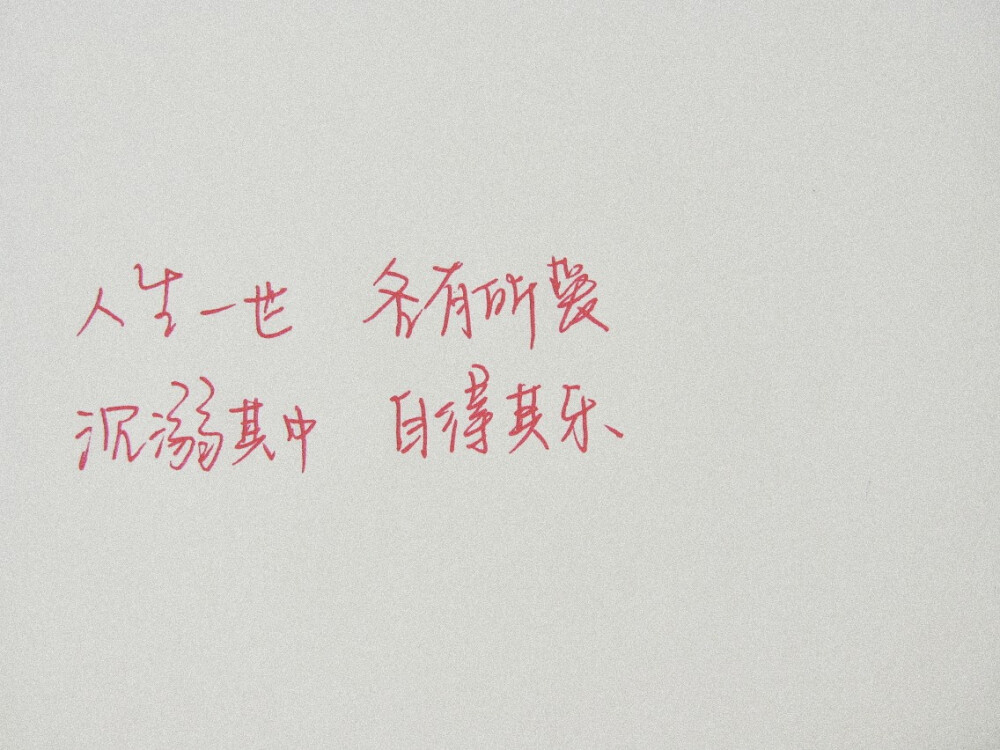 人生一世 各有所爱
沉溺其中 自得其乐